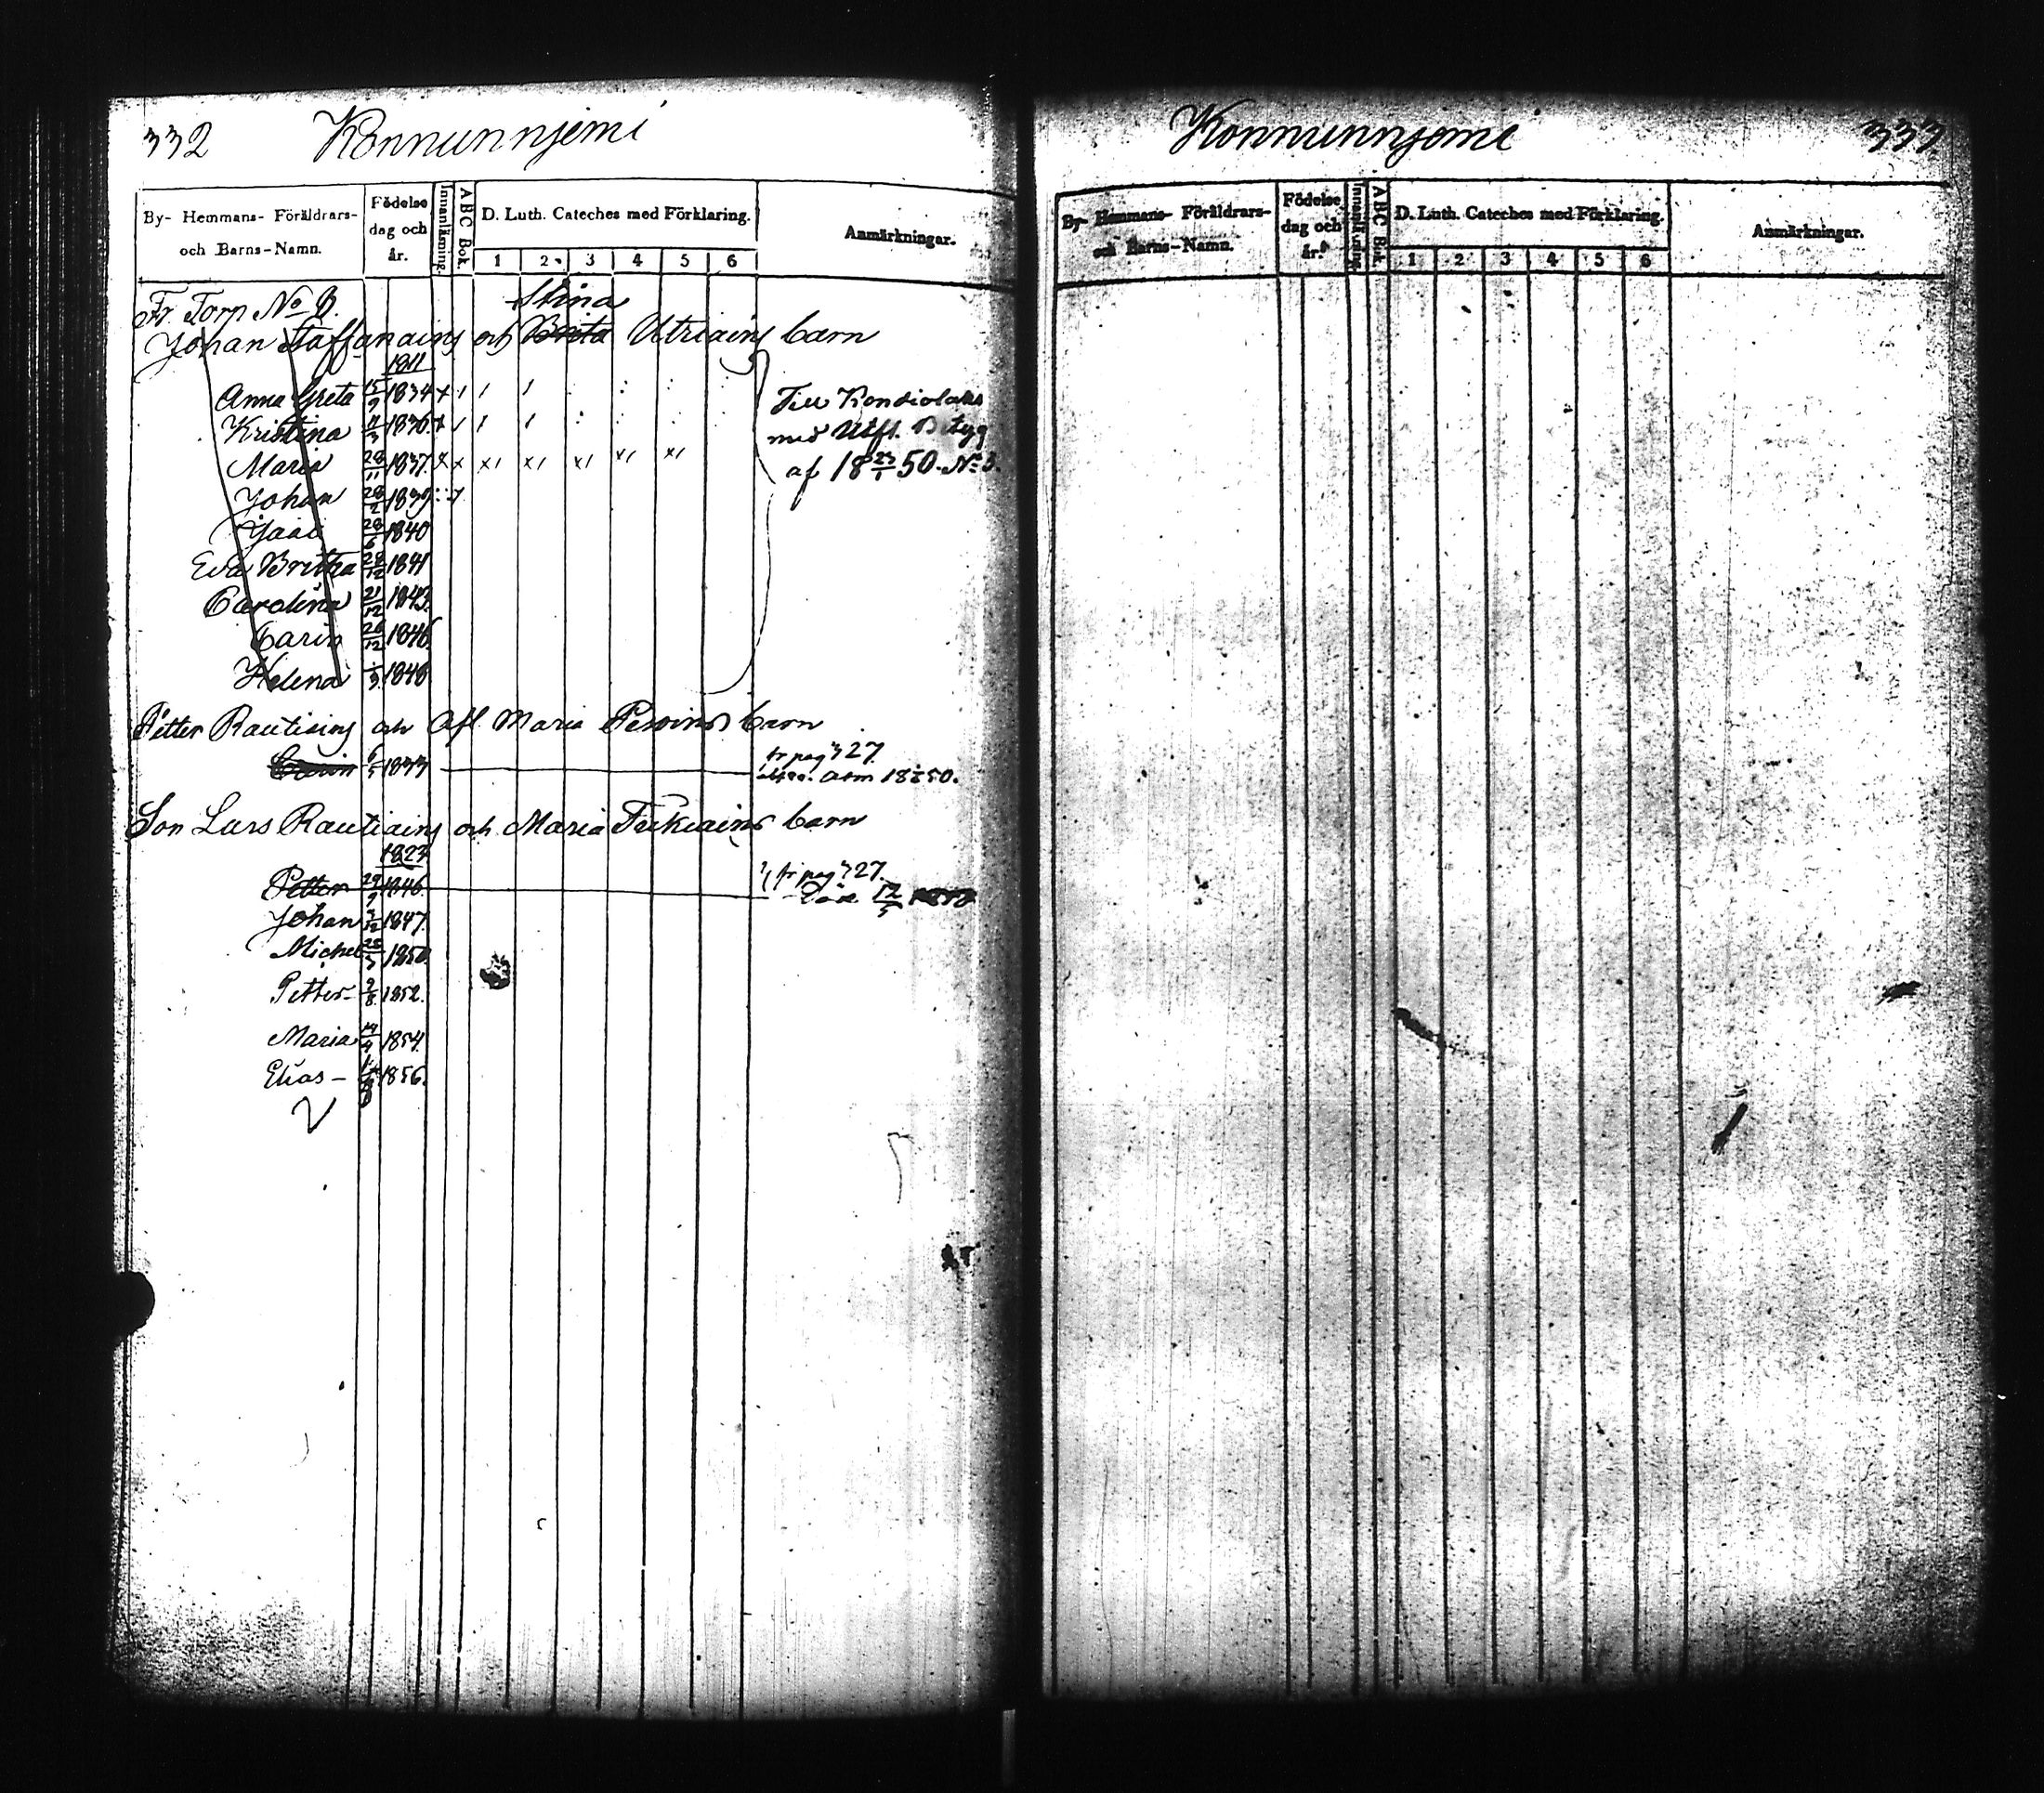 332 Konnunnjemi
By- Hemmans- Föräldrars- och Barns-Namn. Födelse dag och år. Innanläsning. ABC Bok. D. Luth. Cateches med Förklaring. Anmärkningar.
1 2 3 4 5 6
Fr. Torp No 3. Stina
Johan Staffanains och Brita Utriains barn
1811
Anna Greta 15/9 1834 + 1 1 1
Kristina 11/3 1836. + 1 1 1
Till Kondiolaks
med Utfl. Betyg
af 18 23/1 50. No 3.
Maria 28/11 1837. x x x1 x1 x1 x1 x1
Johan 28/2 1839
28/6 1840
Eva Britha 29/12 1841
Carolina 21/12 1843.
Carin 26/12 1846.
Helena 1/9 1848
Petter Rautiains och Afl Maria barn
Carin 6/5 1833 fr pag 327.
1850.
Son Lars Rautiains och Maria barn
1823
Petter 29/9 1846. fr pag 327.
Död 12/5
Johan 3/12 1847.
Michel 1850.
Petter - 2/8 1852.
Maria 1854.
Elias - 1856.
Konnunnjemi 333
By- Hemmans- Föräldrars- och Barns-Namn. Födelse dag och år. Innanläsning. ABC Bok. D. Luth. Cateches med Förklaring. Anmärkningar.
1 2 3 4 5 6